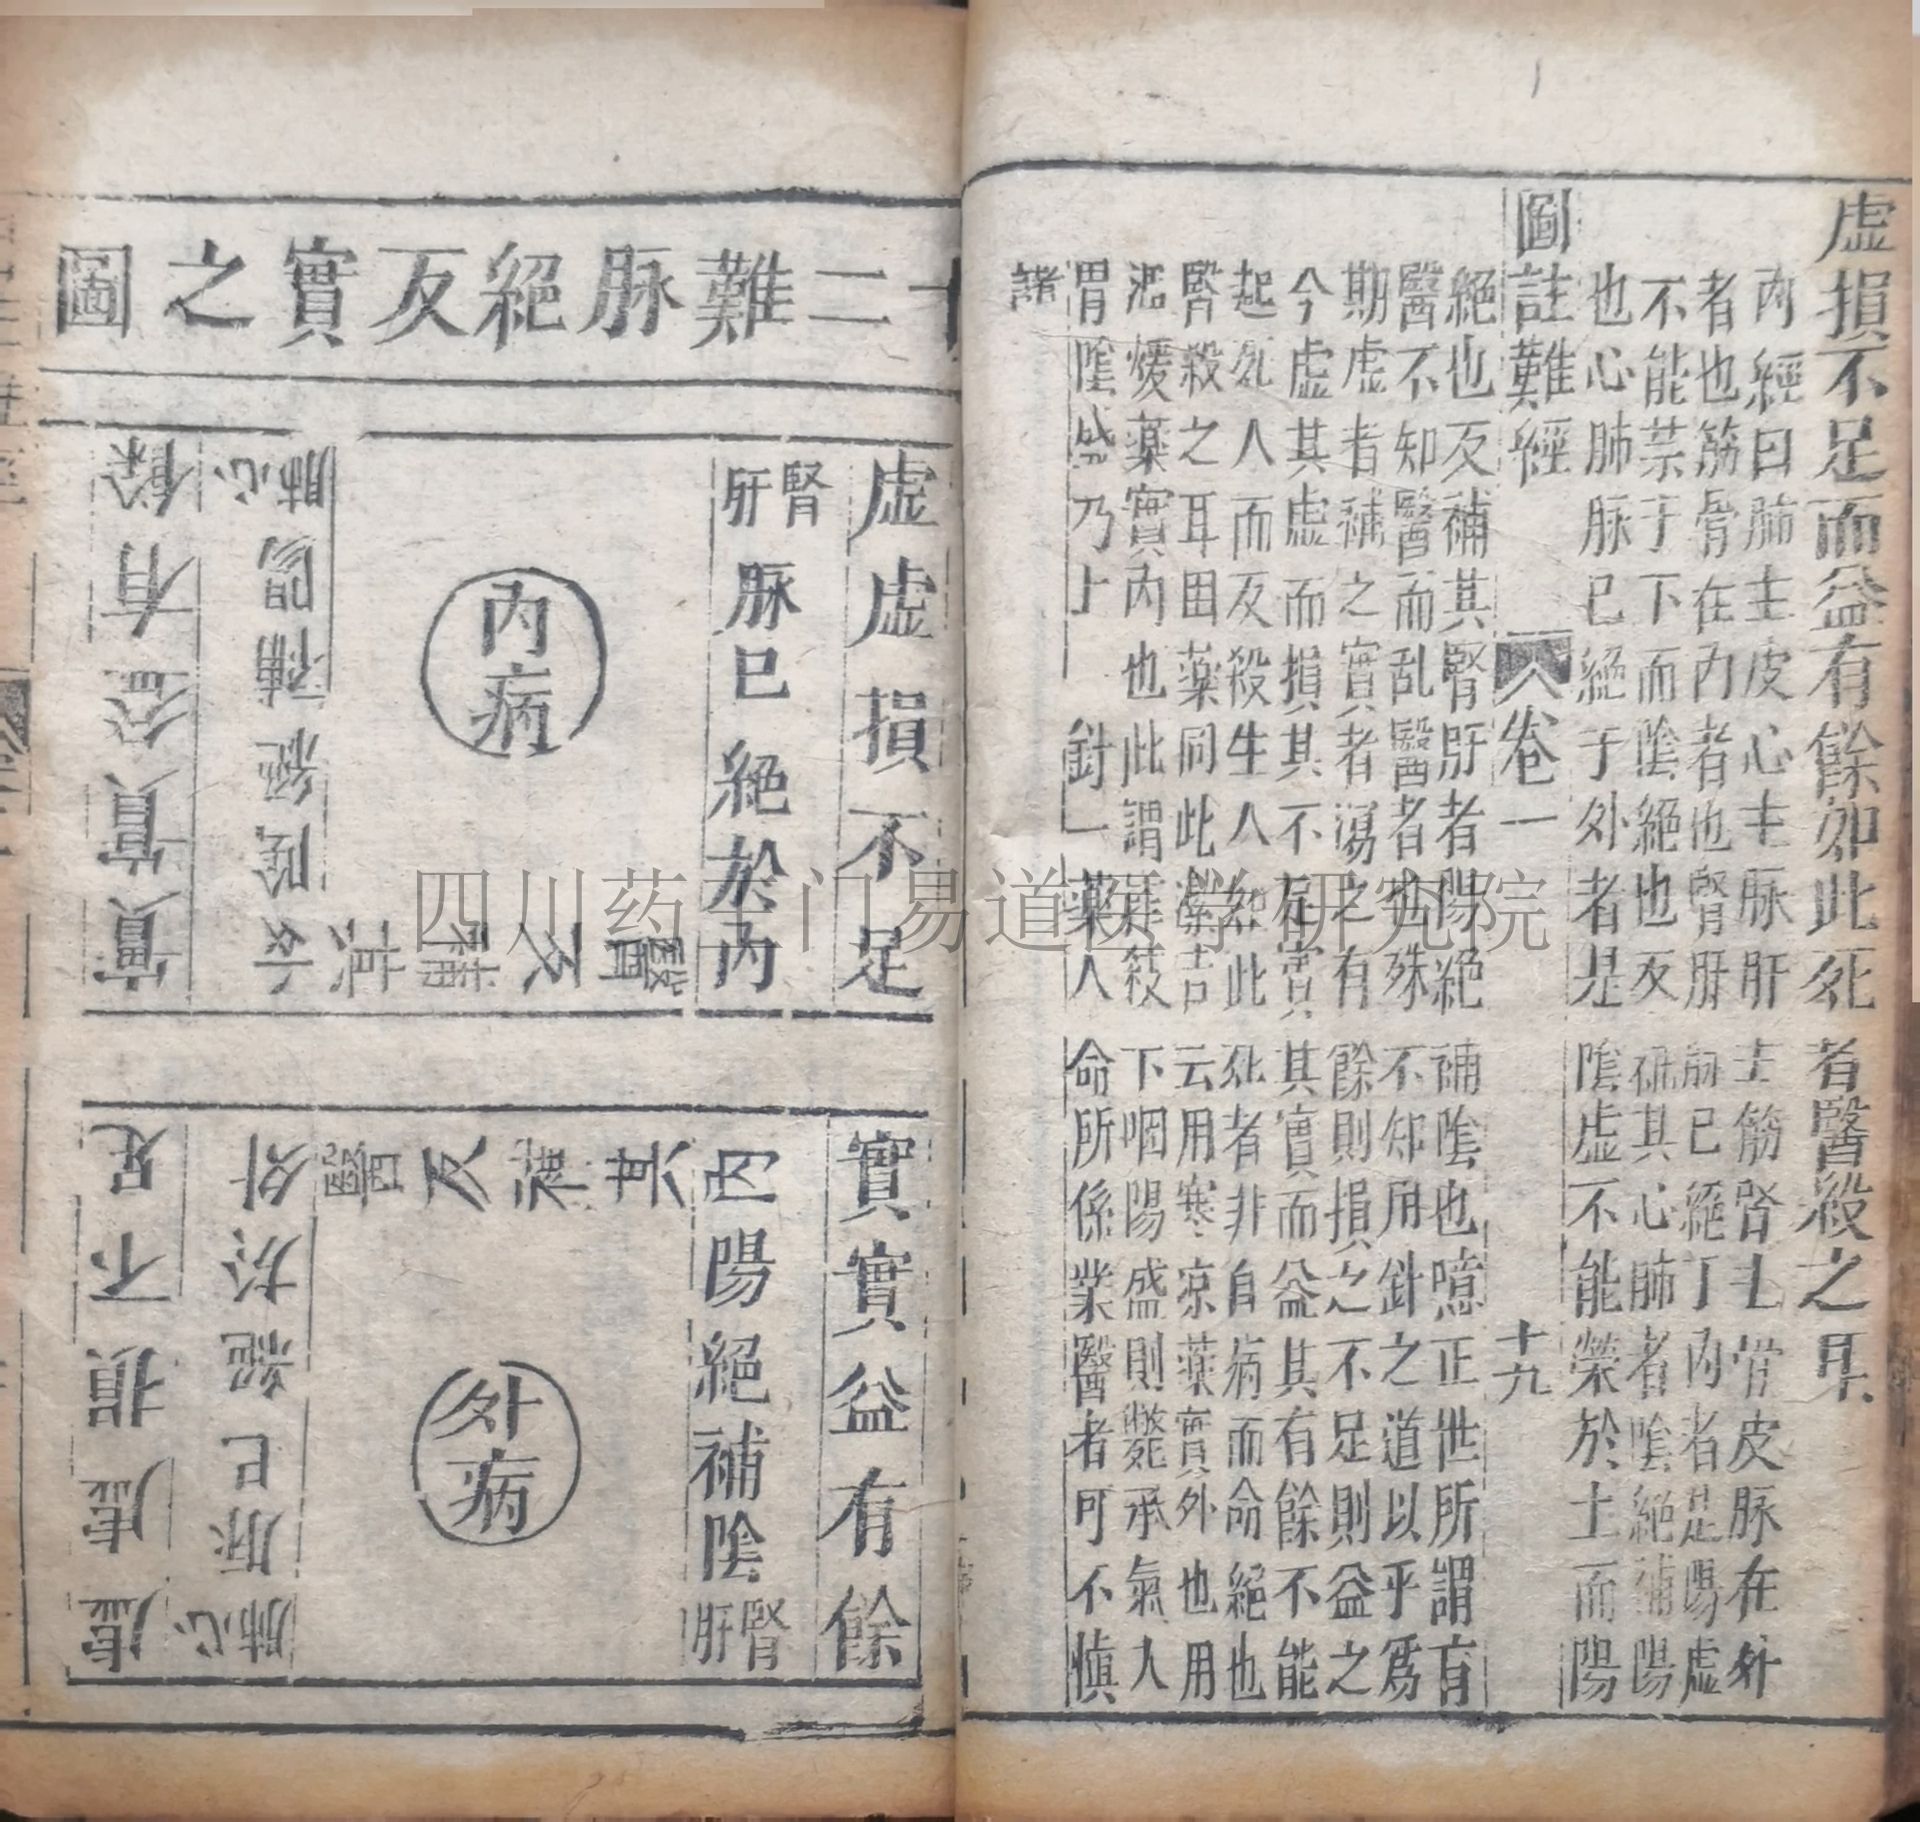 虛損不足而益有餘如此死者醫殺之耳
內經曰肺主皮心主脉肝主筋腎主骨皮脉在外
者也筋骨在內者也腎肝脉已絕于內者是陽虛
不能禁于下而陰絕也反補其心肺者陰絕補陽
也心肺脉已絕于外者是陰虛不能榮於上而陽
圖註難經 卷一 十九
絕也反補其腎肝者陽絕補陰也噫正世所謂盲
醫不知醫而乱醫者也殊不知用針之道以乎爲
期虛者補之實者瀉之有餘則損之不足則益之
今虛其虛而損其不足實其實而益其有餘不能
起死人而反殺生人如此死者非自病而命絕也
醫殺之耳田藥同此潔古云用寒凉藥實外也用
溫煖藥實內也此謂葚殺下咽陽盛則斃承氣入
胃陰盛乃上 針一藥人命所係業醫者可不慎
諸
十二難脉絕反實之圖
虛虛損不足
腎肝脉已絕於內
內病
醫反補其心肺
陰絕補陽心肺
實實益有餘
實實益有餘
已陽絕補陰腎肝
醫反補其
外病
心肺脉已絕於外
虛虛損不足
四川药王门易道医学研究院